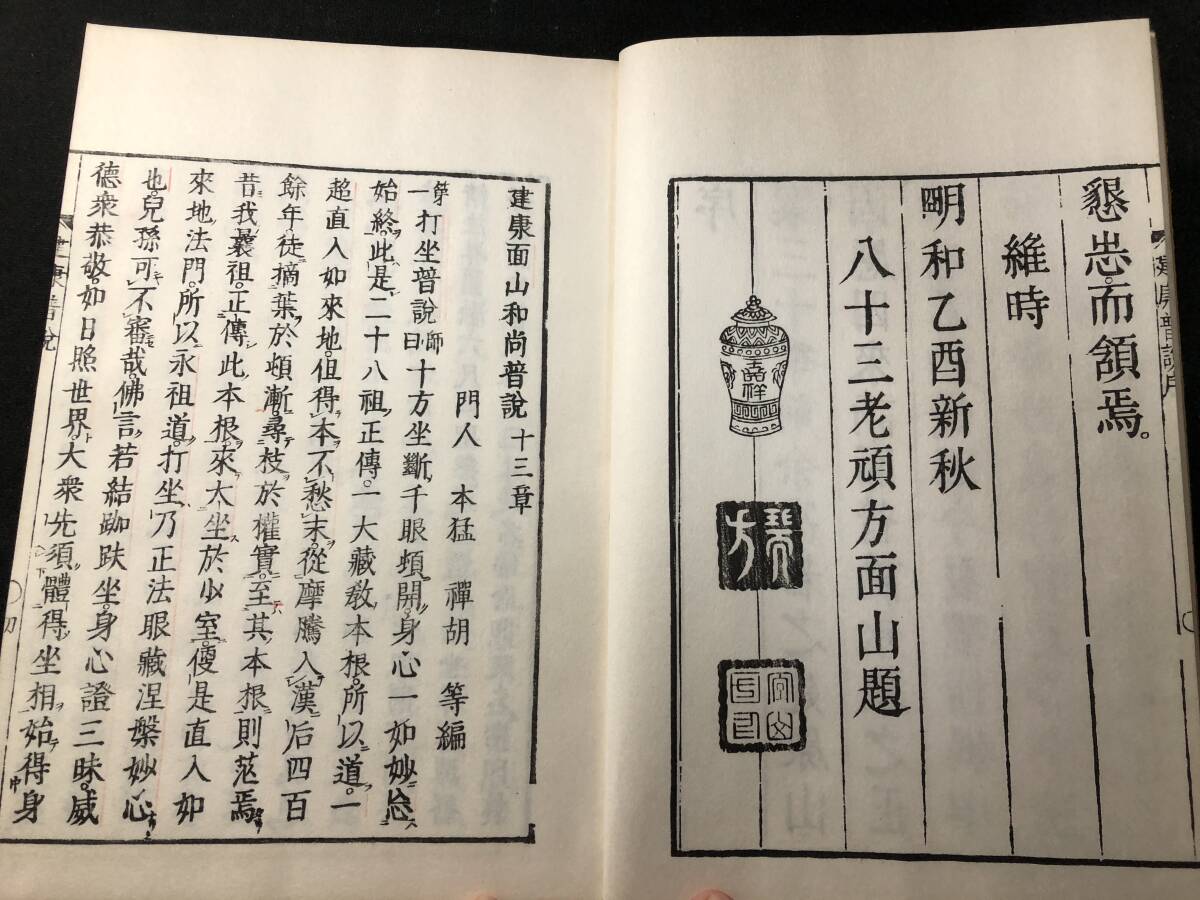 懇怷而頷焉。
維時
明和乙酉新秋
八十三老頑方面山題
嘉祥
建康面山和尚普說 十三章
門人 本猛 禪胡 等編
一打坐普說師曰十方坐斷千眼頓開身心一如妙忘
始終此是二十八祖正傳一大藏教本根所以道一
超直入如來地但得本不愁末從摩騰入漢后四百
餘年徒摘葉於頓漸尋枝於權實至其本根則茫焉
昔我曩祖正傳此本根來大坐於少室便是直入如
來地法門所以永祖道打坐乃正法眼藏涅槃妙心
也兒孫可不審哉佛言若結跏趺坐身心證三昧威
德衆恭敬如日照世界大衆先須體得坐相始得身
建康普說